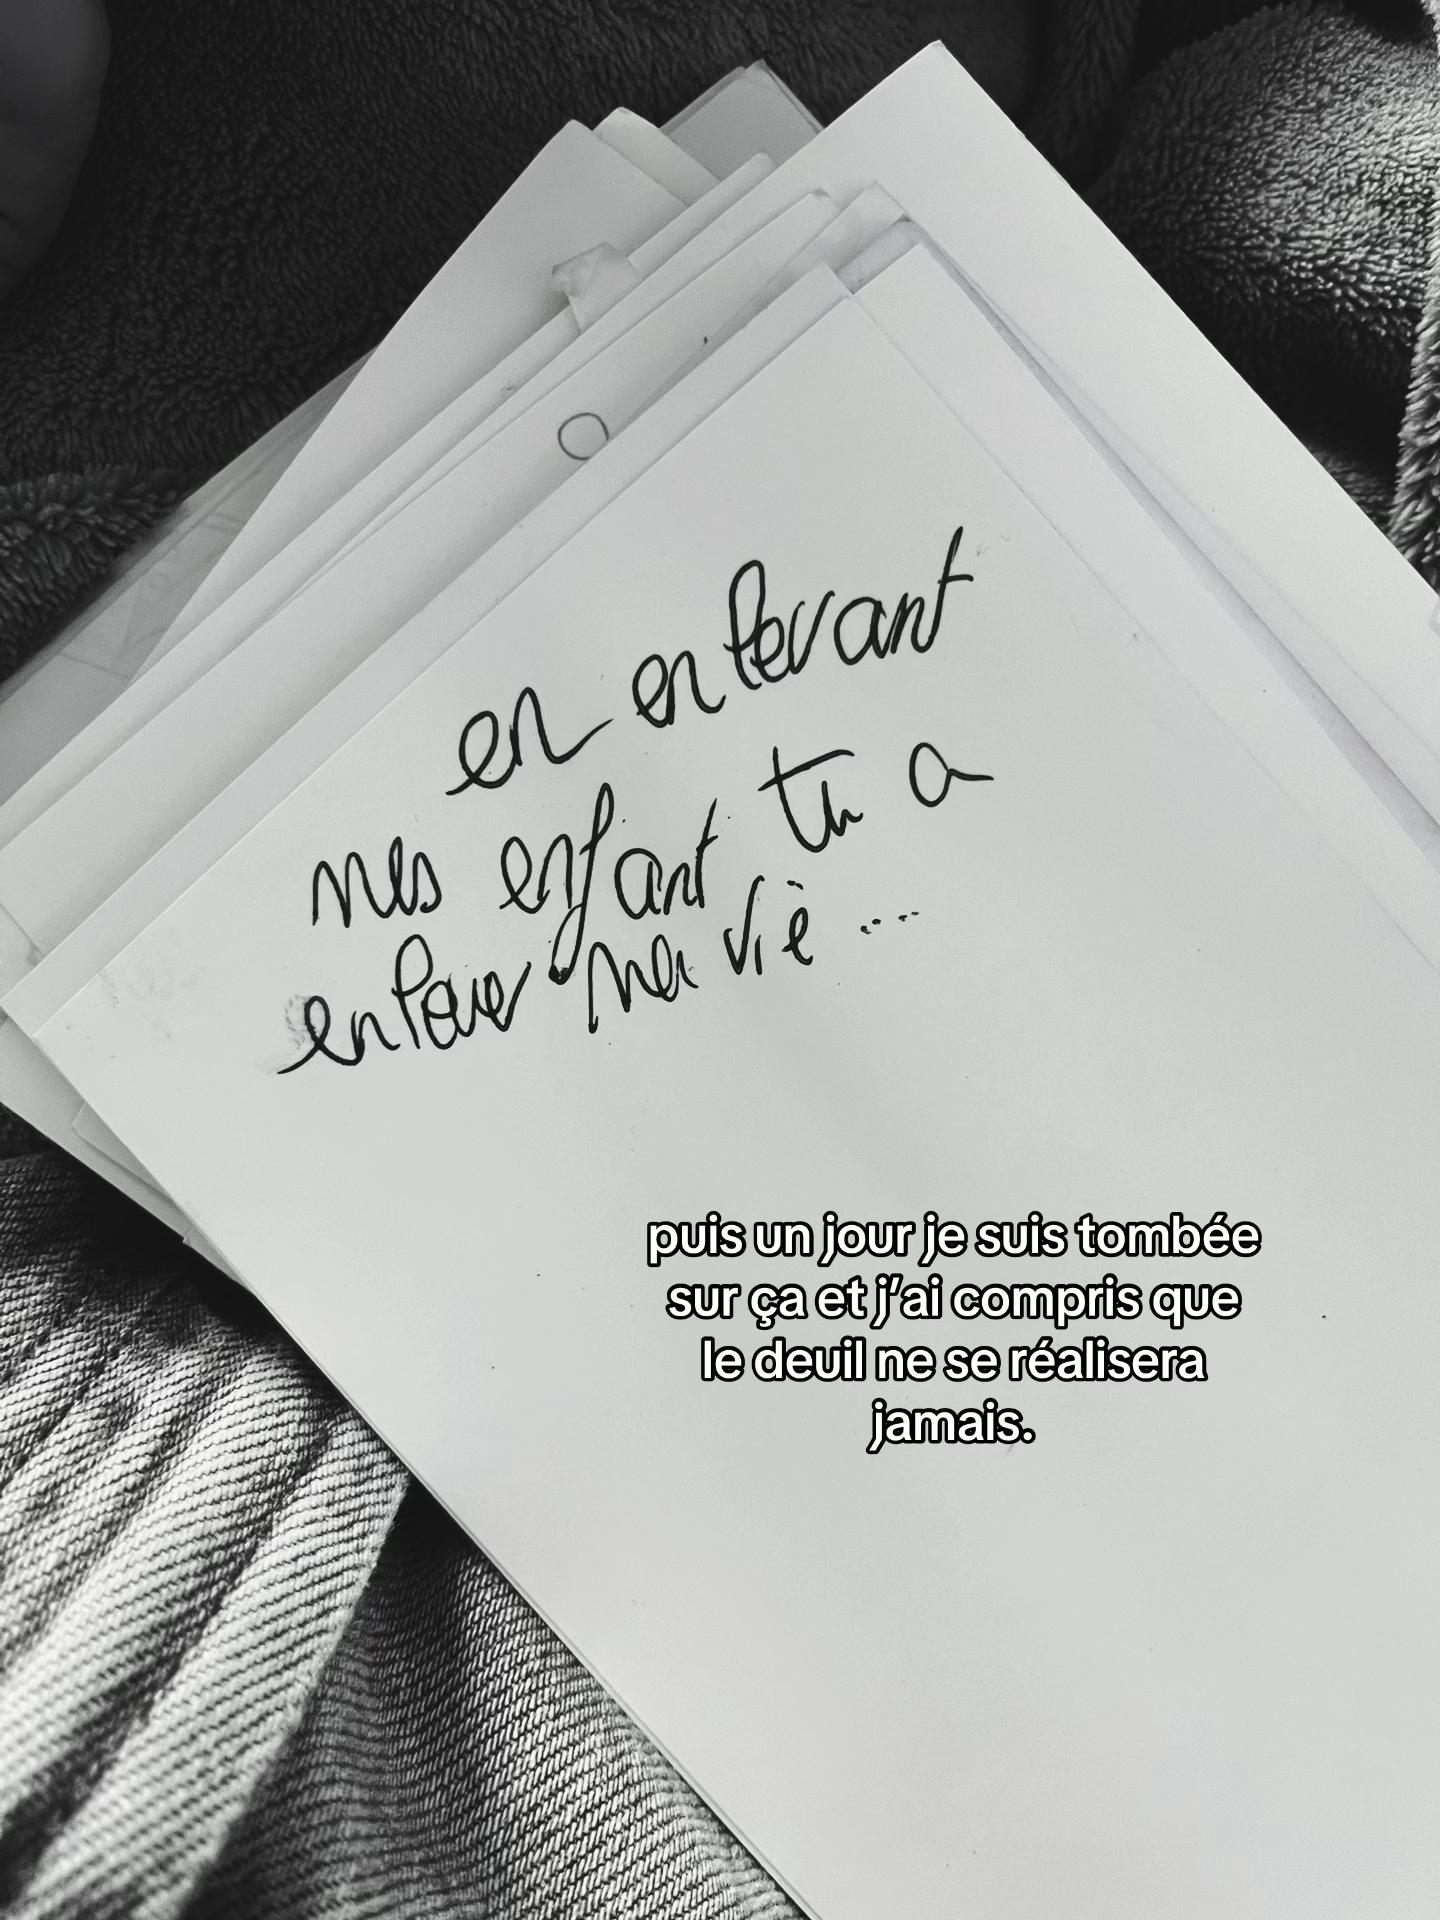 en enlevant
mes enfant tu a
enlever ma vie ....
puis un jour je suis tombée
sur ça et j'ai compris que
le deuil ne se réalisera
jamais.